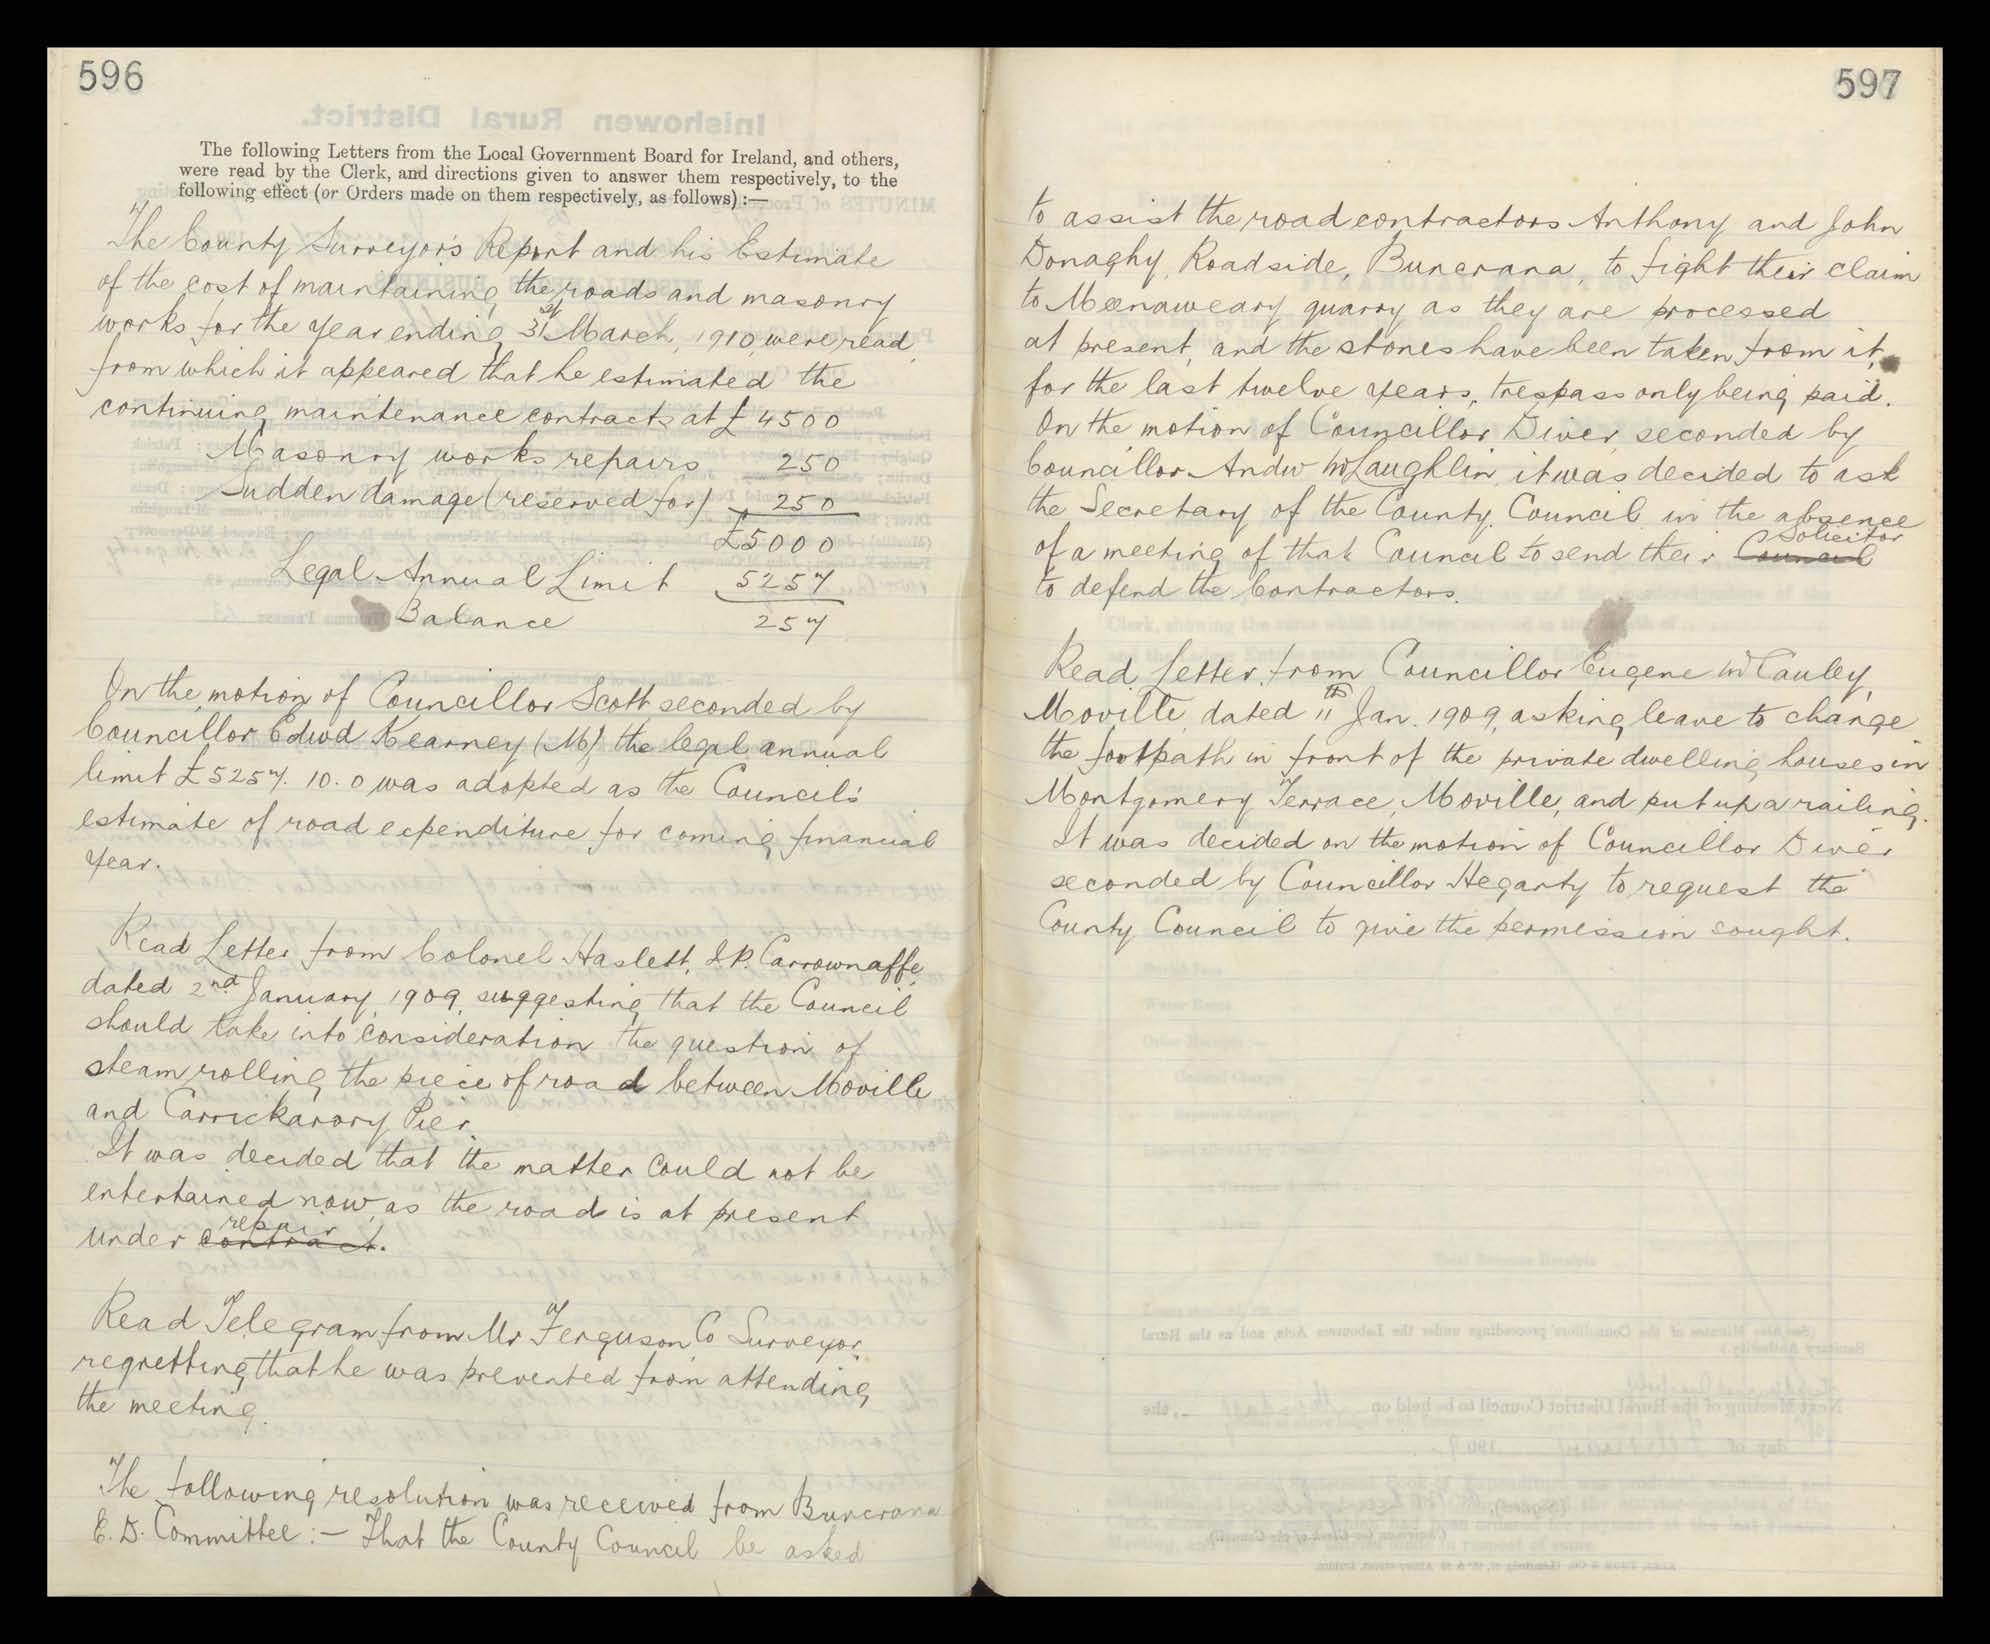 596
The following Letters from the Local Government Board for Ireland, and others,
were read by the Clerk, and directions given to answer them respectively, to the
following effect (or Orders made on them respectively, as follows) :—
The County Surveyor's Report and his Estimate
of the cost of maintaining the roads and masonry
works for the year ending 31st March, 1910, were read
from which it appeared that he estimated the
continuing maintenance contracts at £ 4500
Masonry works repairs 250
Sudden damage (reserved for) 250
£5000
Legal Annual Limit 5257
Balance 257
On the motion of Councillor Scott seconded by
Councillor Edwd Kearney (M) the legal annual
limit £5257. 10. 0 was adopted as the Council's
estimate of road expenditure for coming financial
year.
Read Letter from Colonel Haslett, J.P. Carrownaffe,
dated 2nd January, 1909, suggesting that the Council
should take into consideration the question of
steam rolling the piece of road between Moville
and Carrickarory Pier.
It was decided that the matter could not be
entertained now, as the road is at present
repair
under contract.
Read Telegram from Mr Ferguson, Co Surveyor,
regretting that he was prevented from attending
the meeting.
The following resolution was received from Buncrana
E. D. Committee :— That the County Council be asked
597
to assist the road contractors Anthony and John
Donaghy, Roadside, Buncrana, to fight their claim
to Meenaweary quarry as they are processed
at present, and the stones have been taken from it,
for the last twelve years, trespass only being paid.
On the motion of Councillor Diver seconded by
Councillor Andw McLaughlin, it was decided to ask
the Secretary of the County Council in the absence
Solicitor
of a meeting of that Council to send their Council
to defend the Contractors.
Read Letter from Councillor Eugene McCauley,
Moville, dated 11th Jan. 1909, asking leave to change
the footpath in front of the private dwelling houses in
Montgomery Terrace, Moville, and put up a railing.
It was decided on the motion of Councillor Diver
seconded by Councillor Hegarty to request the
County Council to give the permission sought.